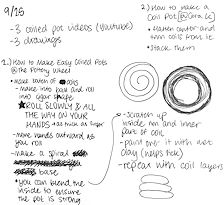 9/25
- 3 coiled pot videos (youtube)
- 3 drawings
1.) How to Make Easy Coiled Pots
@ The Pottery Wheel
- make batch of coils
- make into ball and roll
into cigar shape
★ ROLL SLOWLY & ALL
THE WAY ON YOUR
HANDS
- move hands outward as
you roll
- make a spiral
base
★ you can blend the
inside to ensure
the pot is strong
2.) How to make a
Coil Pot
- Master center and
turn coils from it
- Stack them
- scratch up
inside rim and inner
part of coil
- paint over it with wet
clay (helps stick)
- repeat with coil layers